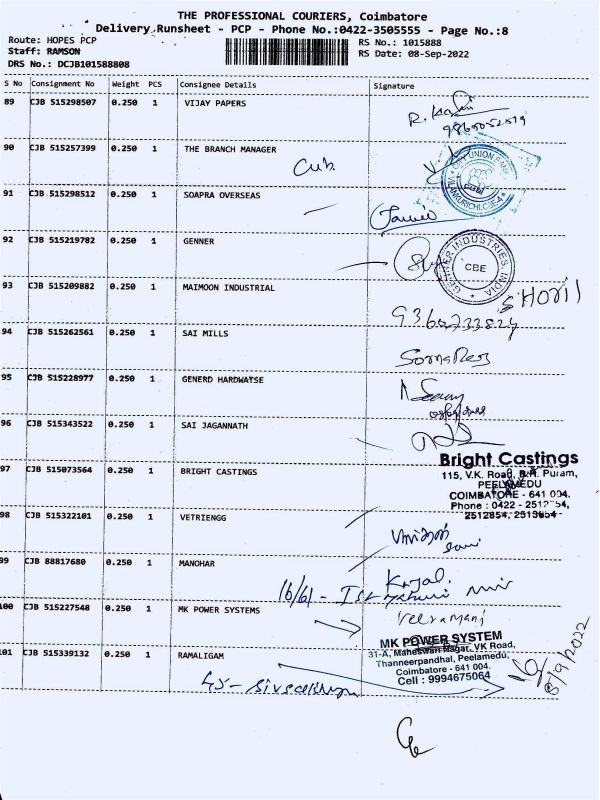 THE PROFESSIONAL COURIERS, Coimbatore
Delivery Runsheet - PCP - Phone No.:0422-3505555 - Page No.:8
Route: HOPES PCP
RS No.: 1015888
Staff: RAMSON
RS Date: 08-Sep-2022
DRS No.: DCJB101588808
S No Consignment No Weight PCS Consignee Details Signature
89 CJB 515298507 0.250 1 VIJAY PAPERS
90 CJB 515257399 0.250 1 THE BRANCH MANAGER
Cub.
CITY UNION BANK
91 CJB 515298512 0.250 1 SOAPRA OVERSEAS
92 CJB 515219782 0.250 1 GENNER
GENNER INDUSTRIES, INDIA
CBE
93 CJB 515209882 0.250 1 MAIMOON INDUSTRIAL
94 CJB 515262561 0.250 1 SAI MILLS
95 CJB 515228977 0.250 1 GENERD HARDWATSE
96 CJB 515343522 0.250 1 SAI JAGANNATH
97 CJB 515073564 0.250 1 BRIGHT CASTINGS
Bright Castings
115, V.K. Road, B.R. Puram,
PEELAMEDU
COIMBATORE - 641 004.
Phone : 0422 -
98 CJB 515322101 0.250 1 VETRIENGG
99 CJB 88817680 0.250 1 MANOHAR
Kajal.
16/61 -
100 CJB 515227548 0.250 1 MK POWER SYSTEMS
Veeramani
MK POWER SYSTEM
31-A, Maheswari Nagar, VK Road,
Thanneerpandhal, Peelamedu,
Coimbatore - 641 004.
Cell : 9994675064
101 CJB 515339132 0.250 1 RAMALIGAM
8/9/2022